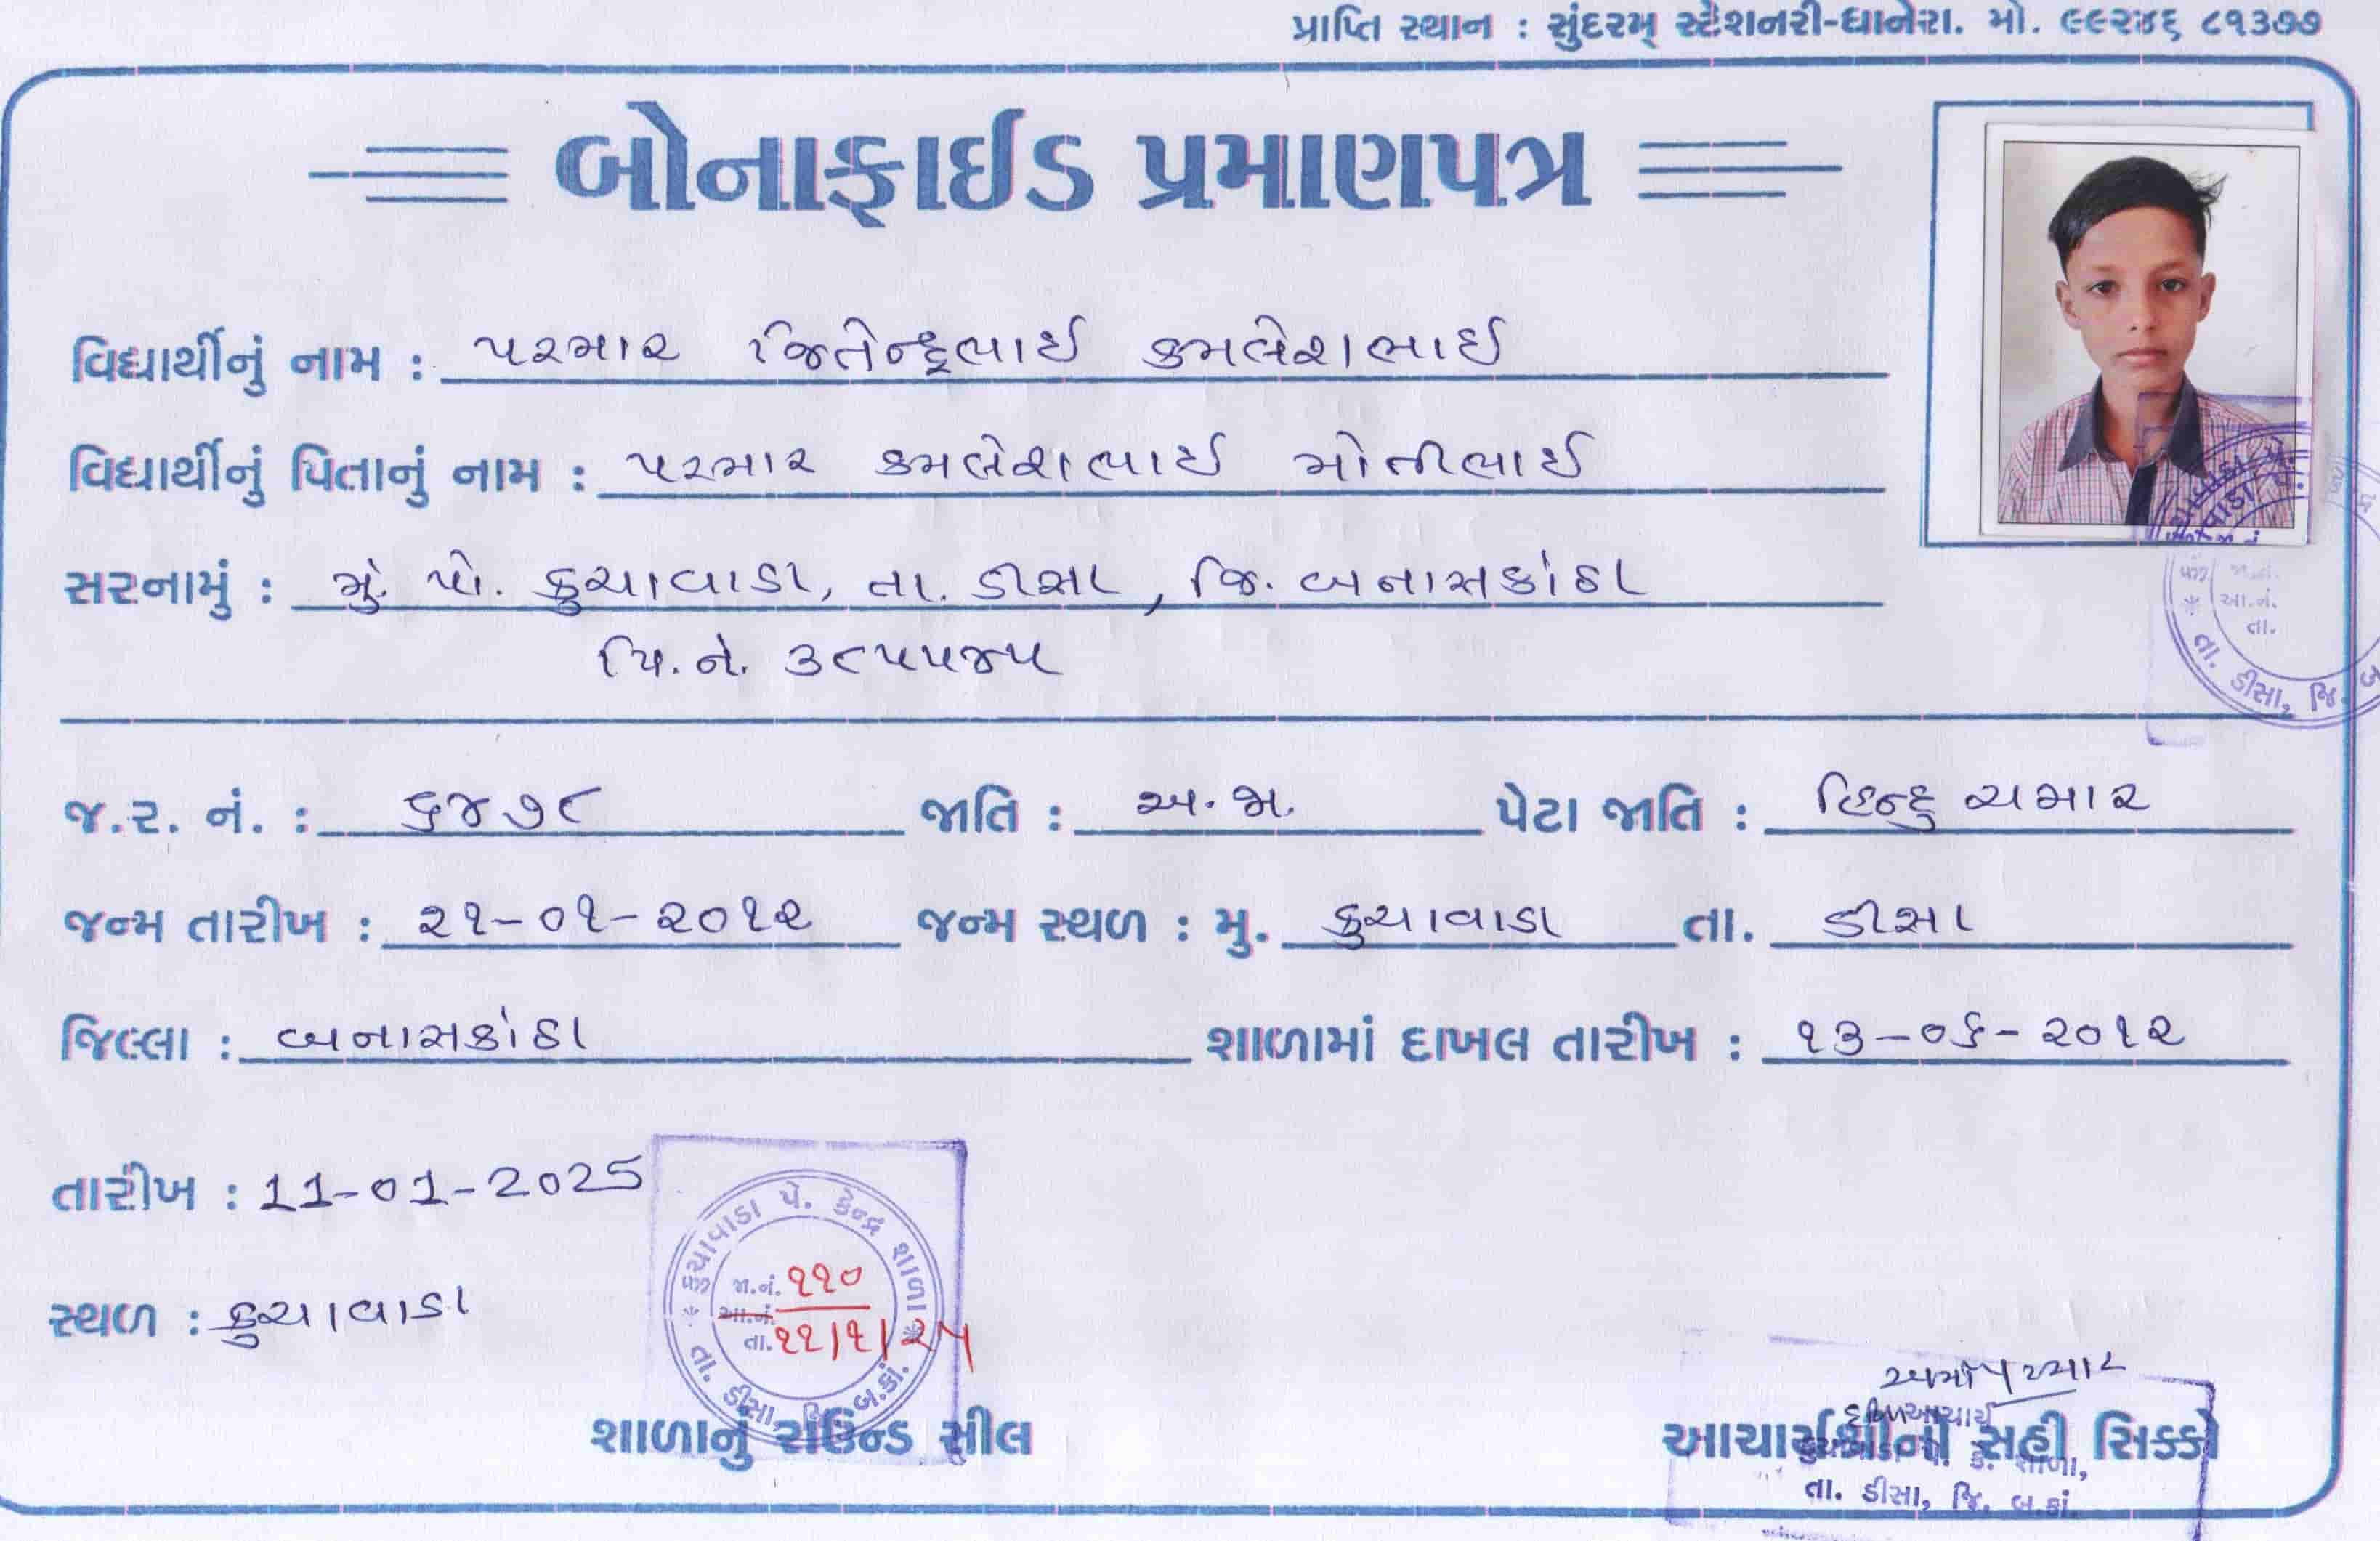 પ્રાપ્તિ સ્થાન : સુંદરમ્ સ્ટેશનરી-ધાનેરા. મો. ૯૯૨૪૬ ૮૧૩૭૭
બોનાફાઈડ પ્રમાણપત્ર
વિદ્યાર્થીનું નામ : પરમાર જિતેન્દ્રભાઈ કમલેશભાઈ
વિદ્યાર્થીનું પિતાનું નામ : પરમાર કમલેશભાઈ મોતીભાઈ
સરનામું : મું. પો. કુચાવાડા, તા. ડીસા, જિ. બનાસકાંઠા
પિ.ન. ૩૮૫૫૪૫
જ.ર. નં. : ૬૪૭૮ જાતિ : અ.જા. પેટા જાતિ : હિન્દુ ચમાર
જન્મ તારીખ : ૨૧-૦૧-૨૦૧૨ જન્મ સ્થળ : મુ. કુચાવાડા તા. ડીસા
જિલ્લા : બનાસકાંઠા શાળામાં દાખલ તારીખ : ૧૩-૦૬-૨૦૧૨
તારીખ : 11-01-2025
કુચાવાડા પે. કેન્દ્ર શાળા
જા.નં. ૧૧૦
આ.નં.
તા. ૧૧/૧/૨૫
તા. ડીસા, જિ. બ.કાં.
સ્થળ : કુચાવાડા
શાળાનું રાઉન્ડ સીલ આચાર્યશ્રીની સહી સિક્કો
તા. ડીસા, જિ. બ.કાં.